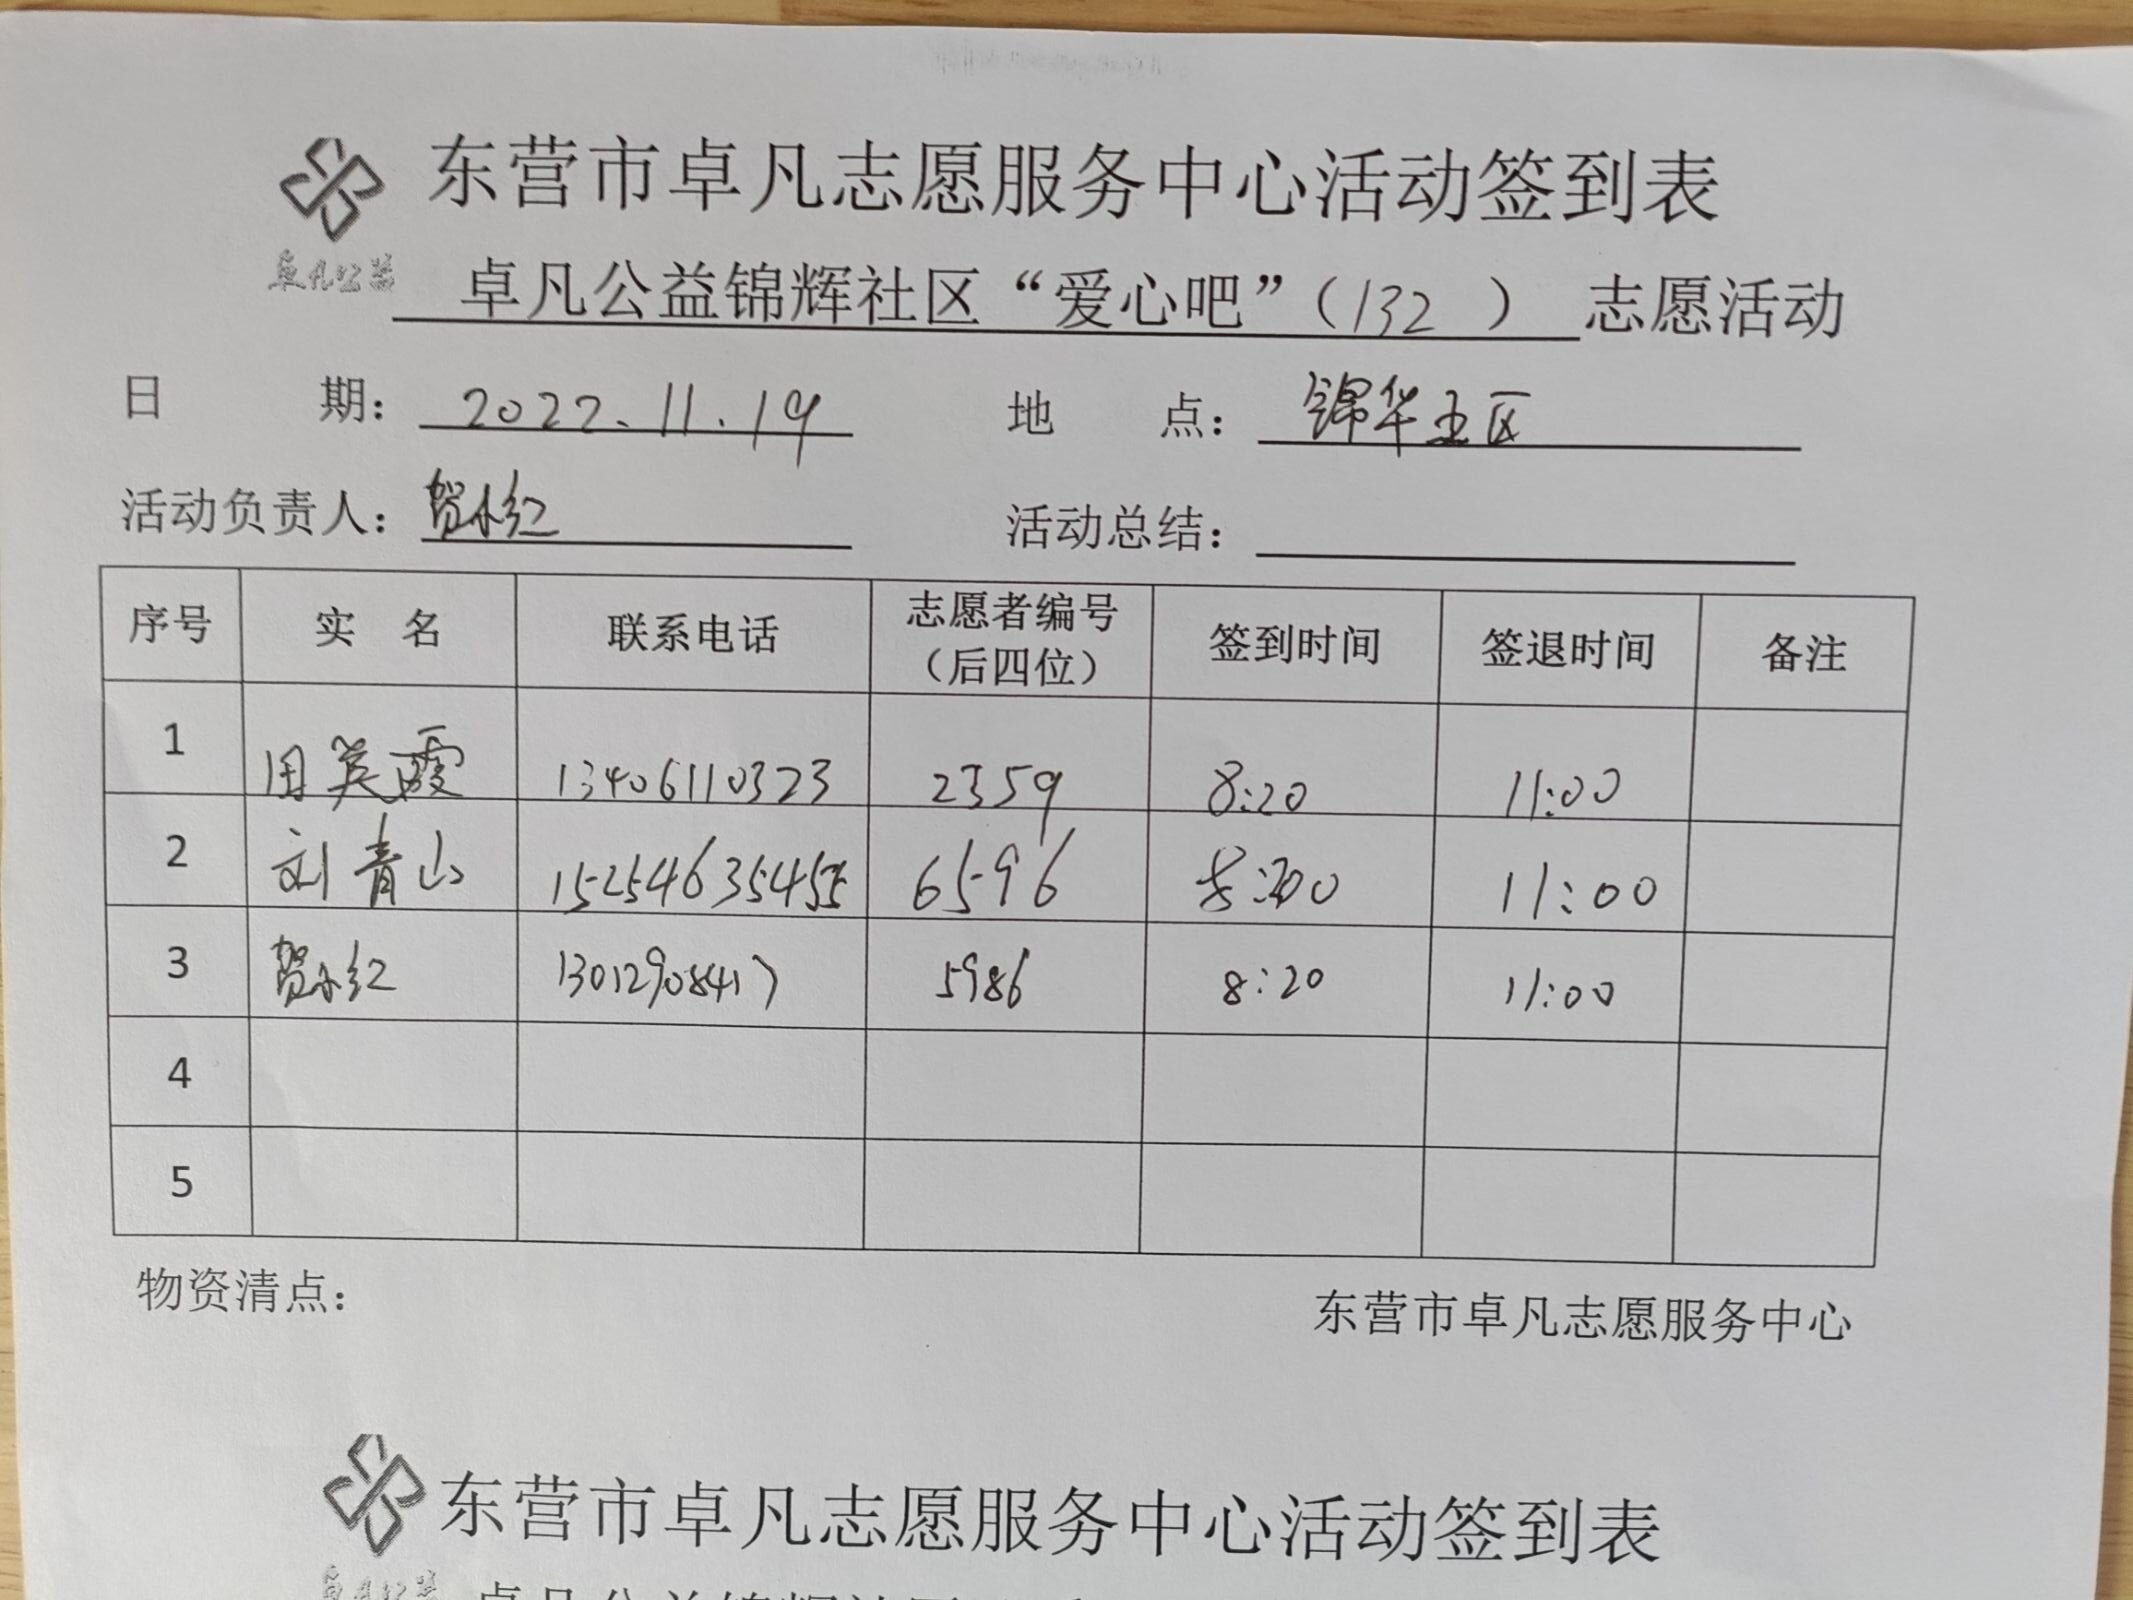 东营市卓凡志愿服务中心活动签到表
卓凡公益
卓凡公益锦辉社区“爱心吧”（132 ） 志愿活动
日 期： 2022.11.19 地 点： 锦华五区
活动负责人： 贺小红 活动总结：
序号 实 名 联系电话 志愿者编号（后四位） 签到时间 签退时间 备注
1 田英霞 13406110323 2359 8:20 11:00
2 刘青山 6596 11:00
3 贺小红 13012908417 5986 8:20 11:00
4
5
物资清点： 东营市卓凡志愿服务中心
东营市卓凡志愿服务中心活动签到表
卓凡公益
卓凡公益锦辉社区